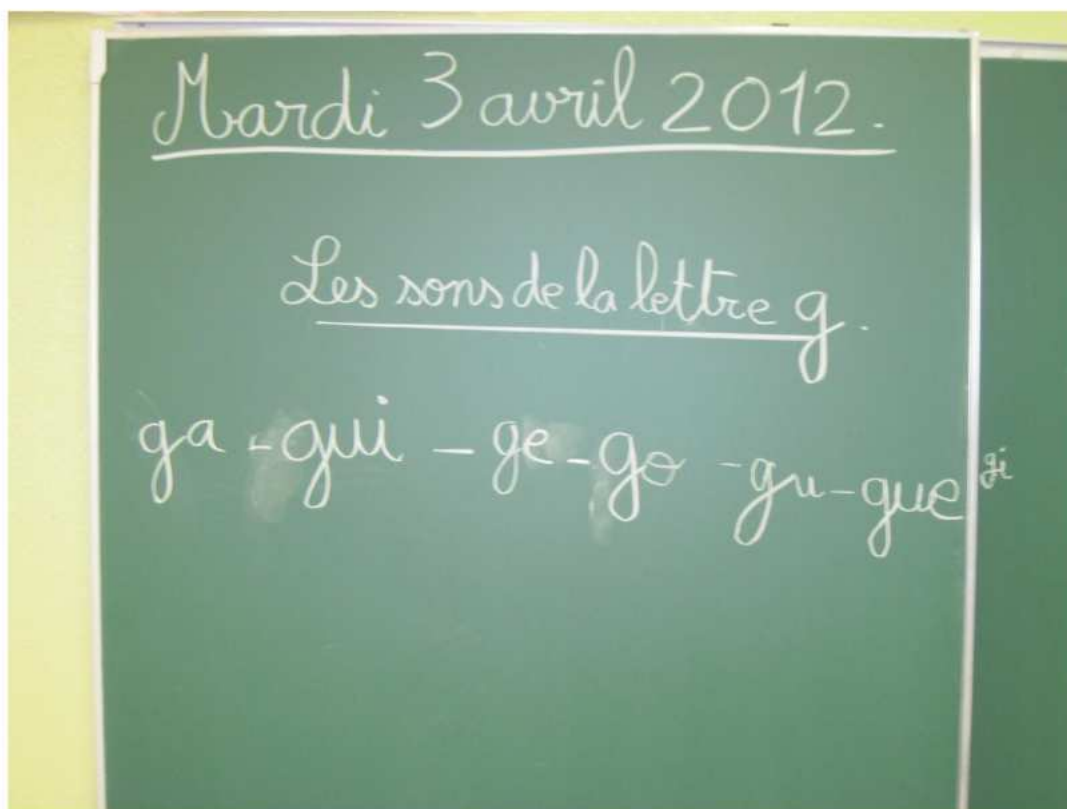 Mardi 3 avril 2012.
Les sons de la lettre g.
ga - gui - ge - go - gu - gue gi